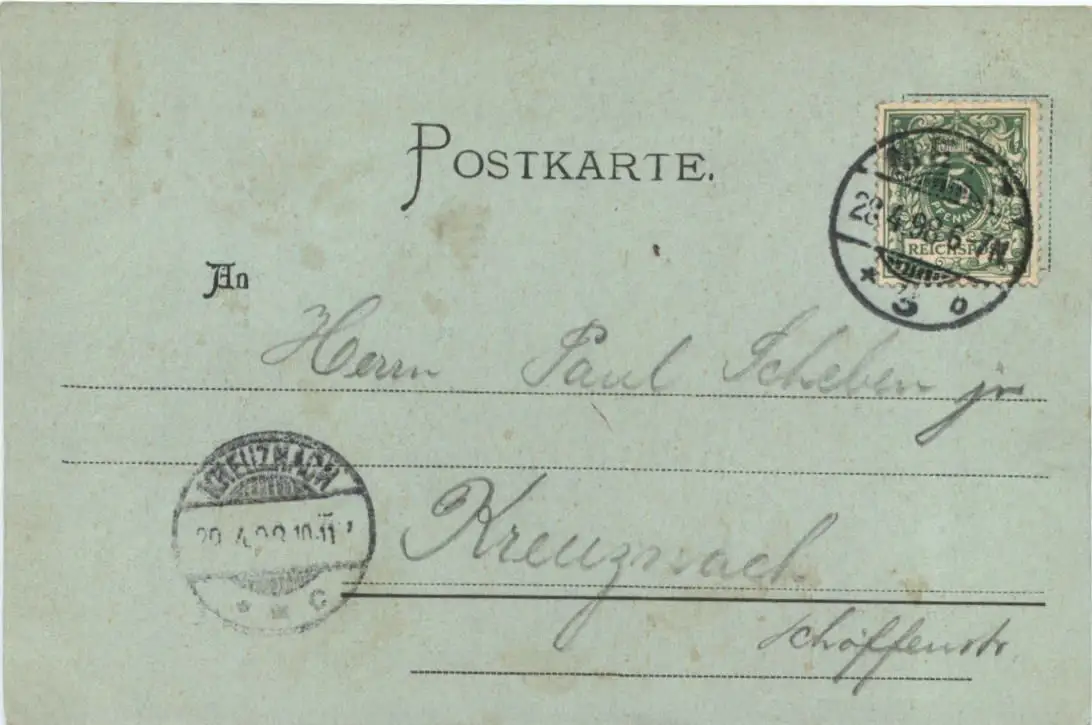 POSTKARTE.
5
PFENNIG
28.4.98.6-7N.
REICHSPOST
* 3 b
An
Herrn Paul Scheben jr
KREUZNACH
29.4.98.10-11
* * C
Kreuznach
Schöffenstr.